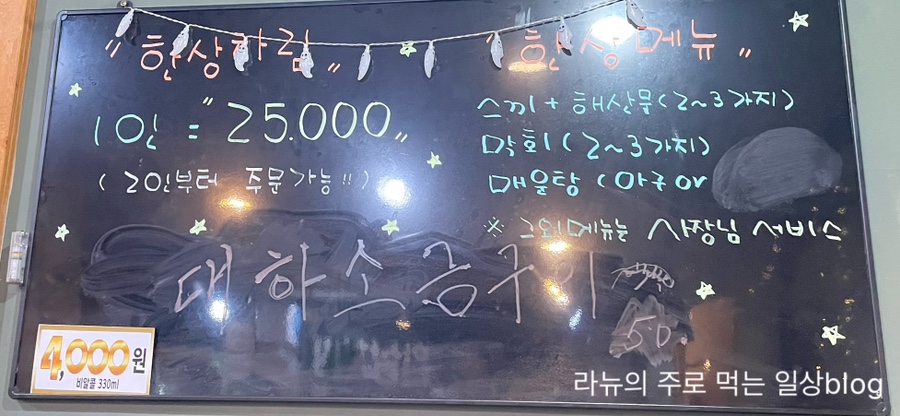 "한상차림"
1인 = "25.000"
(2인부터 주문가능!!)
"한상메뉴"
스끼 + 해산물(2~3가지)
막회(2~3가지)
매운탕 (아구 or
※ 그외메뉴는 사장님 서비스
대하소금구이
50
4,000원
비알콜 330ml
라뉴의 주로 먹는 일상blog